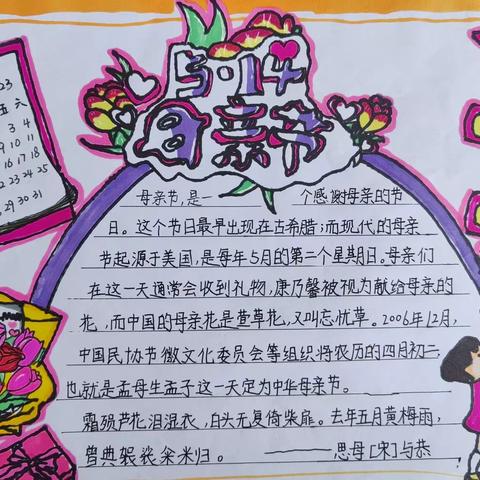 23
五 六
3 4
9 10 11
16 17 18
22 23 24 25
29 30 31
5·14
母亲节
母亲节,是一 个感谢母亲的节
日。这个节日最早出现在古希腊;而现代的母亲
节起源于美国,是每年5月的第二个星期日。母亲们
在这一天通常会收到礼物,康乃馨被视为献给母亲的
花,而中国的母亲花是萱草花,又叫忘忧草。2006年12月,
中国民协节徽文化委员会等组织将农历的四月初二
也就是孟母生孟子这一天定为中华母亲节。
霜殒芦花泪湿衣,白头无复倚柴扉。去年五月黄梅雨,
曾典袈裟籴米归。 ——思母[宋]与恭